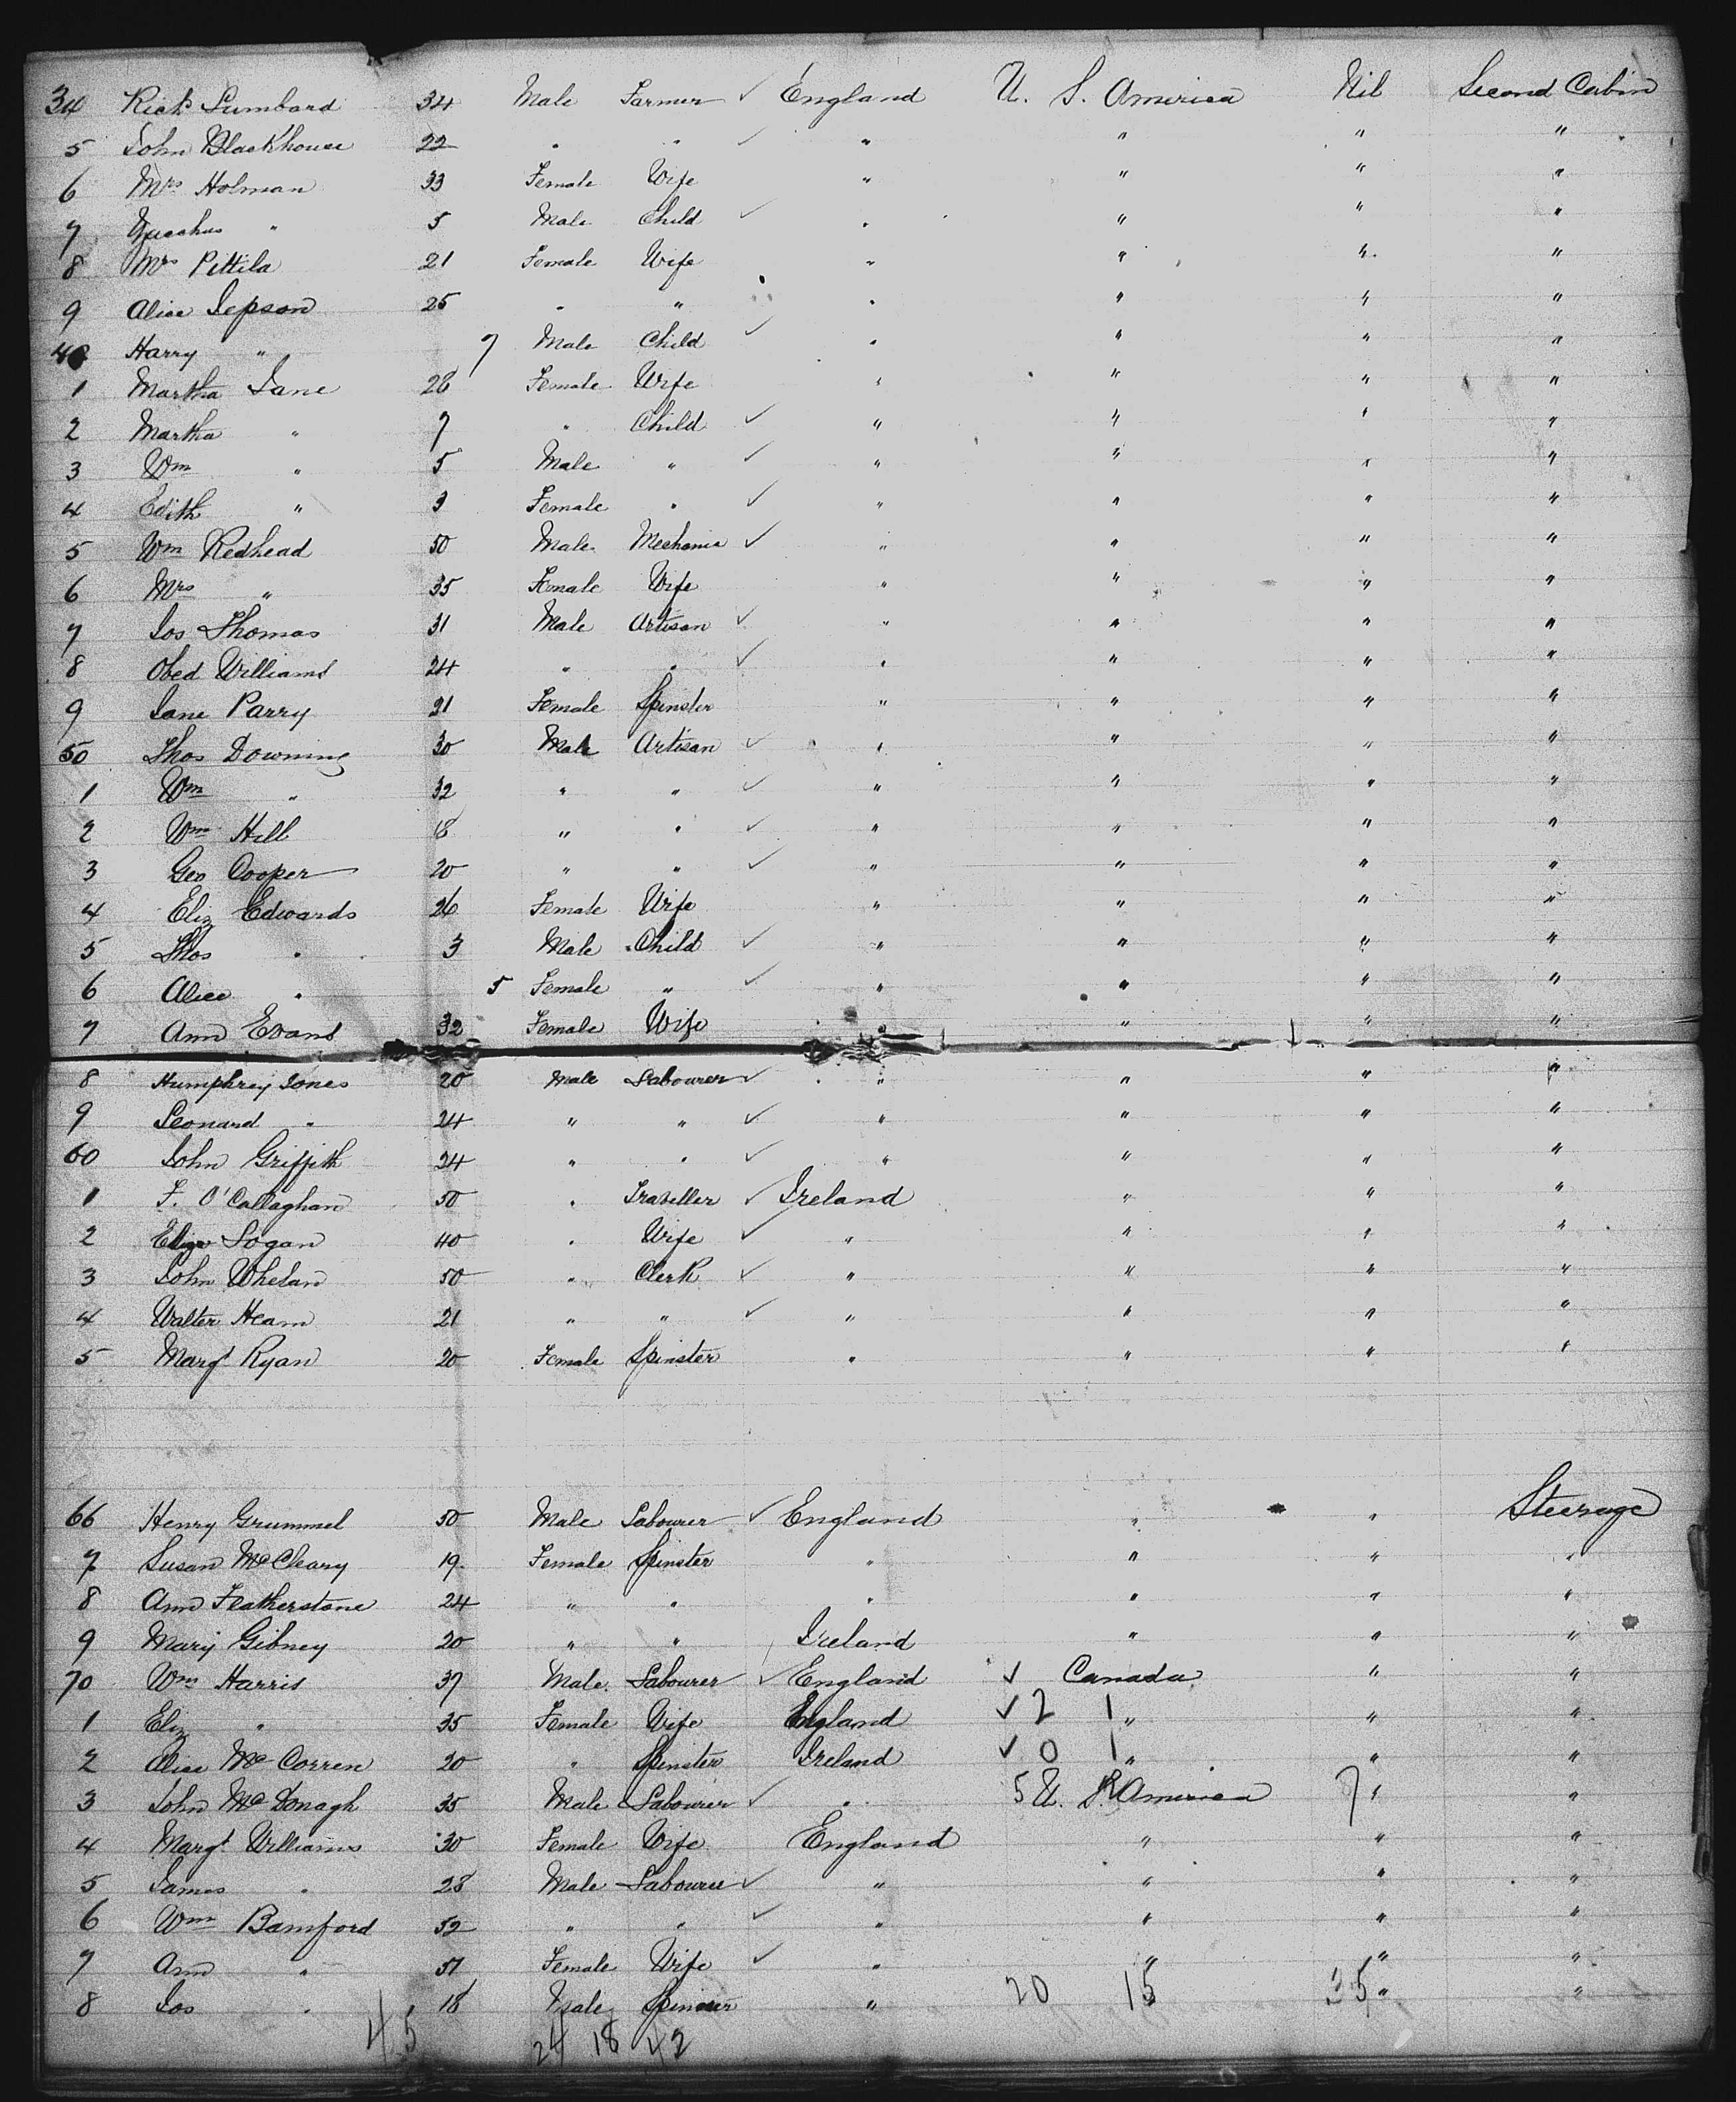 34 Richd Lumbard 34 Male Farmer ✓ England U. S. America Nil Second Cabin
5 John Blackhouse 22 " " ✓ " " " "
6 Mrs Holman 33 Female Wife " " " "
7 " 5 Male Child ✓ " " " "
8 Mrs Pittila 21 Female Wife " " " "
9 Alice Jepson 25 " " " " " "
40 Harry " 7 Male Child ✓ " " " "
1 Martha Jane 28 Female Wife " " " "
2 Martha " 7 " Child ✓ " " " "
3 Wm " 5 Male " ✓ " " " "
4 Edith " 3 Female " ✓ " " " "
5 Wm Redhead 50 Male Mechanic ✓ " " " "
6 Mrs " 35 Female Wife " " " "
7 Jos Thomas 31 Male Artisan ✓ " " " "
8 Obed Williams 24 " " ✓ " " " "
9 Jane Parry 21 Female Spinster " " " "
50 Thos Downing 30 Male Artisan ✓ " " " "
1 Wm " 32 " " ✓ " " " "
2 Wm Hill 18 " " ✓ " " " "
3 Geo Cooper 20 " " ✓ " " " "
4 Eliz Edwards 26 Female Wife " " " "
5 Thos " 3 Male Child ✓ " " " "
6 Alice " 5 Female " ✓ " " " "
7 Ann Evans 32 Female Wife " " " "
8 Humphrey Jones 20 Male Labourer ✓ " " " "
9 Leonard " 24 " " ✓ " " " "
60 John Griffith 24 " " ✓ " " " "
1 F. O'Callaghan 50 " Traveller ✓ Ireland " " "
2 Eliza Logan 40 " Wife ✓ " " " "
3 John Whelan 50 " Clerk ✓ " " " "
4 Walter Heam 21 " " ✓ " " " "
5 Margt Ryan 20 Female Spinster " " " "
66 Henry Grummel 50 Male Labourer ✓ England " " Steerage
7 Susan McCleary 19 Female Spinster " " " "
8 Ann Featherstone 24 " " " " " "
9 Mary Gibney 20 " " Ireland " " "
70 Wm Harris 37 Male Labourer ✓ England ✓ Canada " "
1 Eliz " 35 Female Wife England ✓ 2 1 " " "
2 Alice McCorren 20 " Spinster Ireland ✓ 0 1 " " "
3 John McDonagh 35 Male Labourer ✓ " 5 U. S. America 7 " "
4 Margt Williams 30 Female Wife England " " "
5 James " 28 Male Labourer ✓ " " " "
6 Wm Bamford 52 " " ✓ " " " "
7 Ann " 51 Female Wife ✓ " " " "
8 Jos " 18 Male " 20 15 35 " "
45 24 18 42